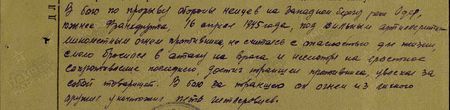 В бою по прорыву обороны немцев на Западном берегу реки Одер,
южнее Франкфурта 16 апреля 1945 года, под сильным артиллерийским
минометным огнем противника, не считаясь с опасностью для жизни,
смело бросился в атаку на врага и несмотря на яростное
сопротивление последнего, достиг траншеи противника, увлекая за
собой товарищей. В бою за траншею он огнем из личного
оружия уничтожил пять гитлеровцев.